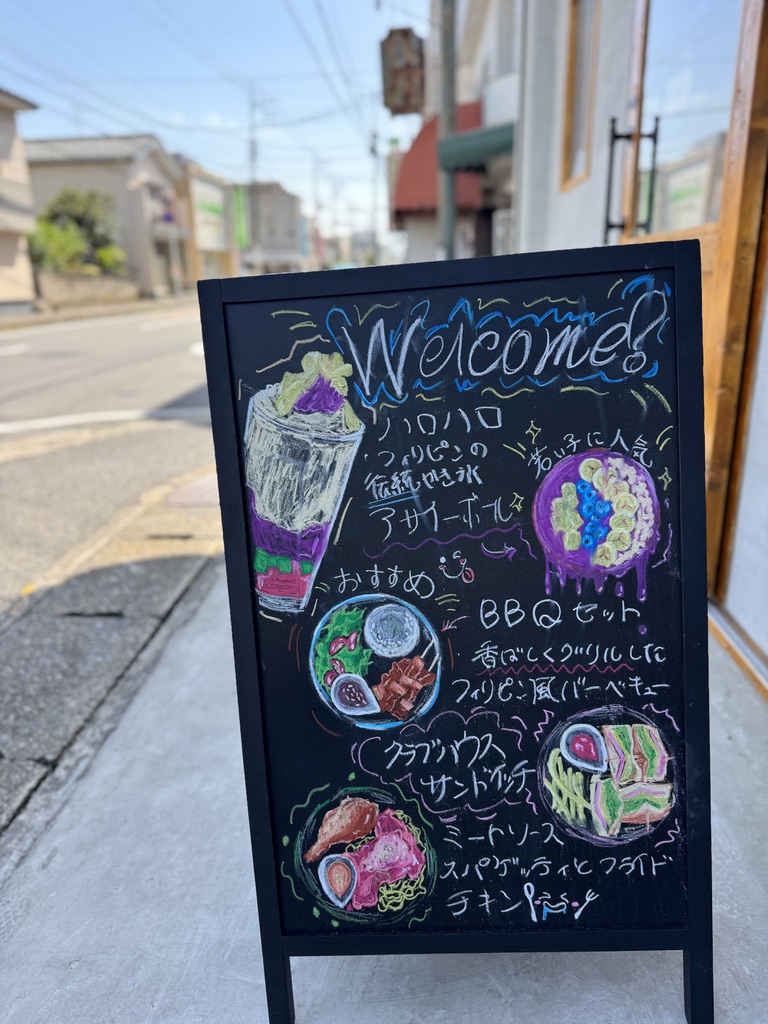 Welcome!
ハロハロ
フィリピンの
伝統かき氷
若い子に人気
アサイーボール
おすすめ
BBQセット
香ばしくグリルした
フィリピン風バーベキュー
クラブハウス
サンドイッチ
ミートソース
スパゲッティとフライド
チキン